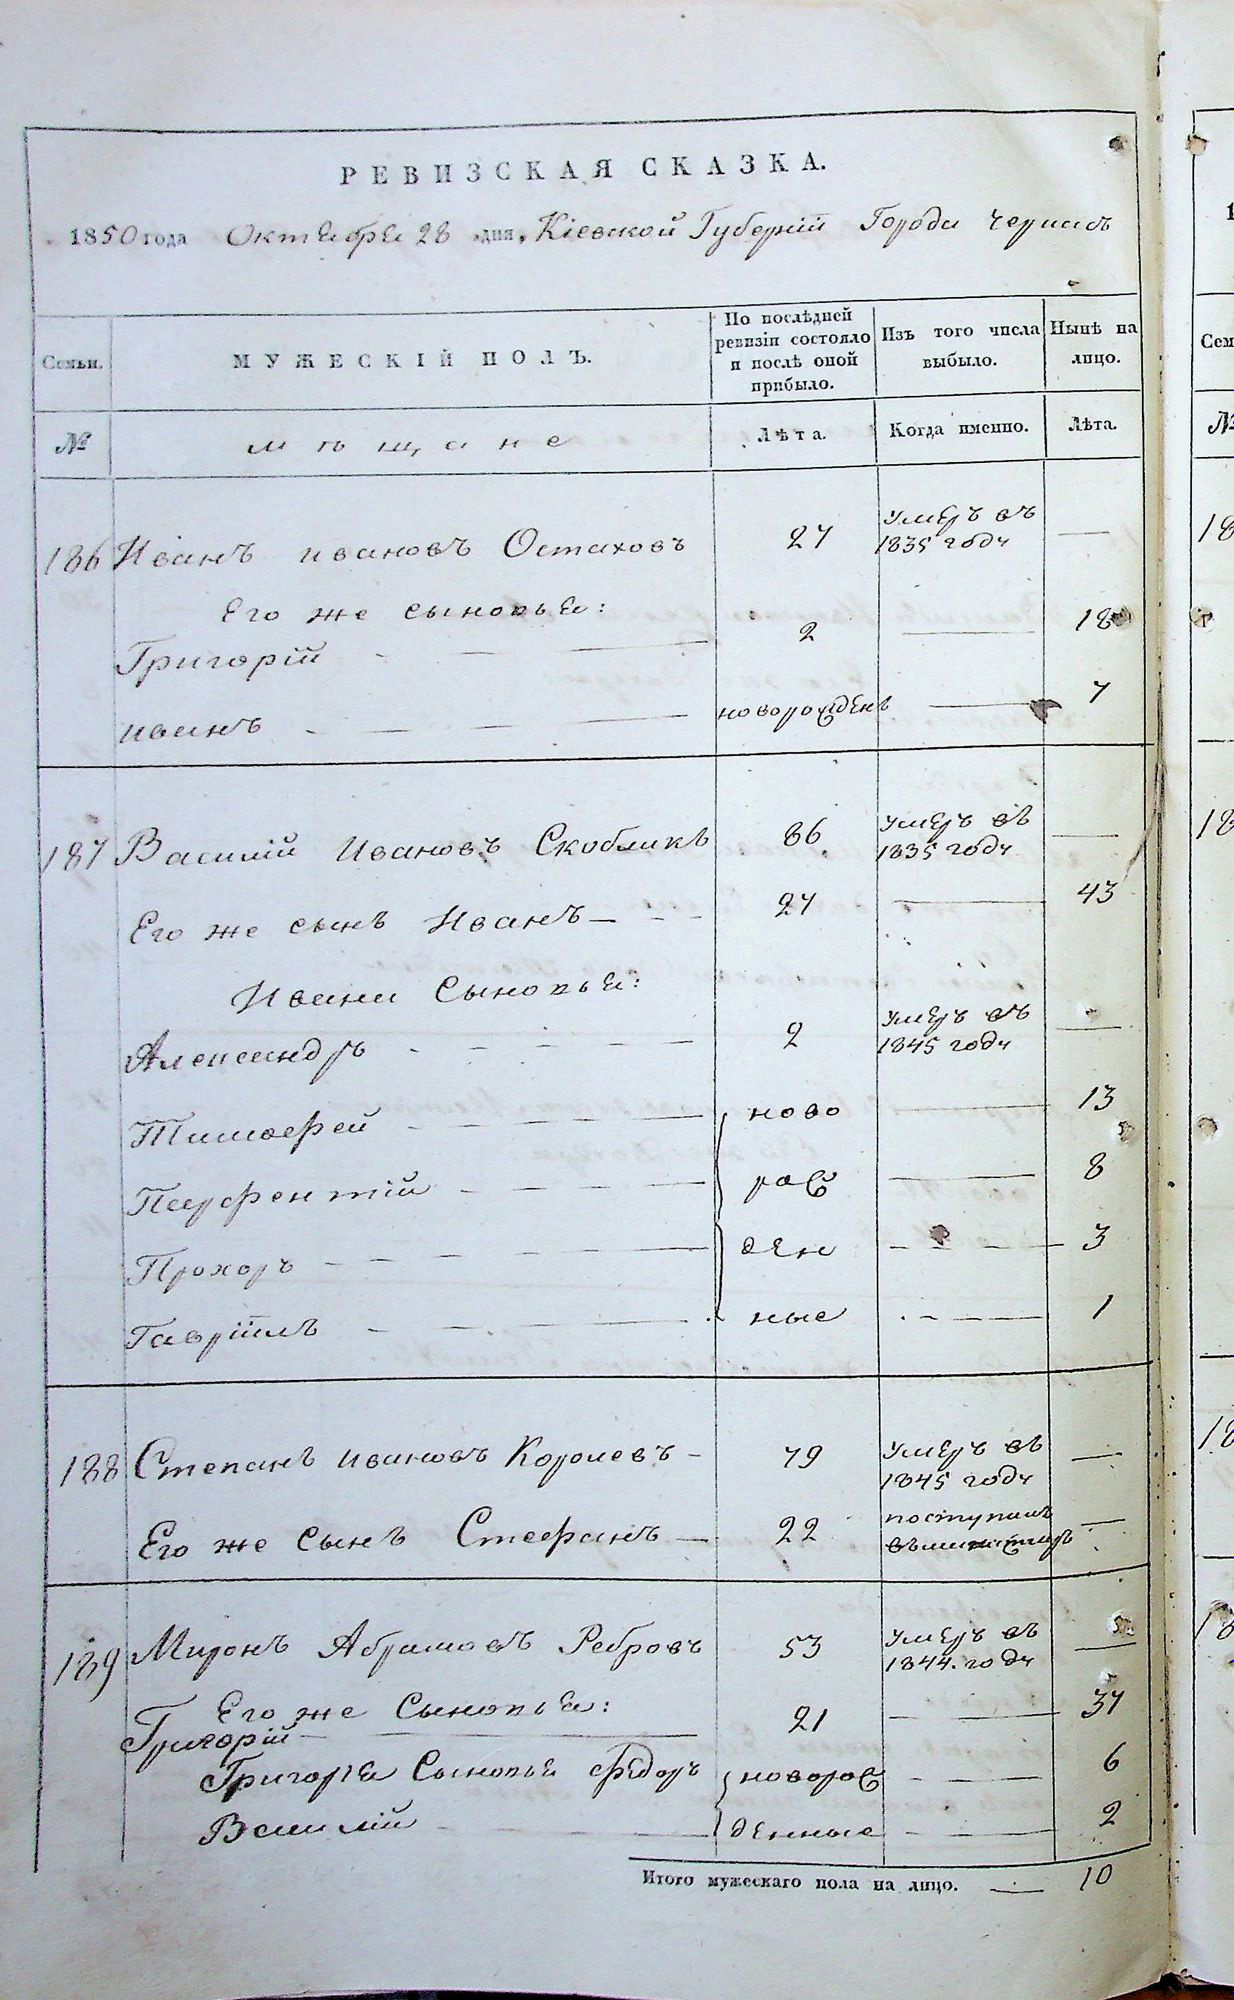 РЕВИЗСКАЯ СКАЗКА.
1850 года Октября 28 дня, Кіевской Губерніи Города Черкасъ
Семьи. МУЖЕСКІЙ ПОЛЪ. По послѣдней ревизіи состояло и послѣ оной прибыло. Изъ того числа выбыло. Нынѣ на лицо.
№ мѣщане Лѣта. Когда именно. Лѣта.
186 Иванъ ивановъ Остаховъ 27 умеръ въ 1835 году —
Его же сыновья:
Григорій 2 — 18
иванъ новорожденъ — 7
187 Василій Ивановъ Скобликъ 66 умеръ въ 1835 году —
Его же сынъ Иванъ 27 — 43
Ивана Сыновья:
Александръ 2 умеръ въ 1845 году —
Тимофей ново — 13
Парфентій рож — 8
Прохоръ ден — 3
Гавріилъ ные — 1
188 Степанъ ивановъ Королевъ 79 умеръ въ 1845 году —
Его же сынъ Стефанъ 22 поступилъ —
189 Миронъ Абрамовъ Ребровъ 53 умеръ въ 1844. году —
Его же Сыновья:
Григорій 21 — 37
Григорія Сыновья Федоръ новорож — 6
Василій денные — 2
Итого мужескаго пола на лицо. — 10
1
Сем
№
18
18
18
18